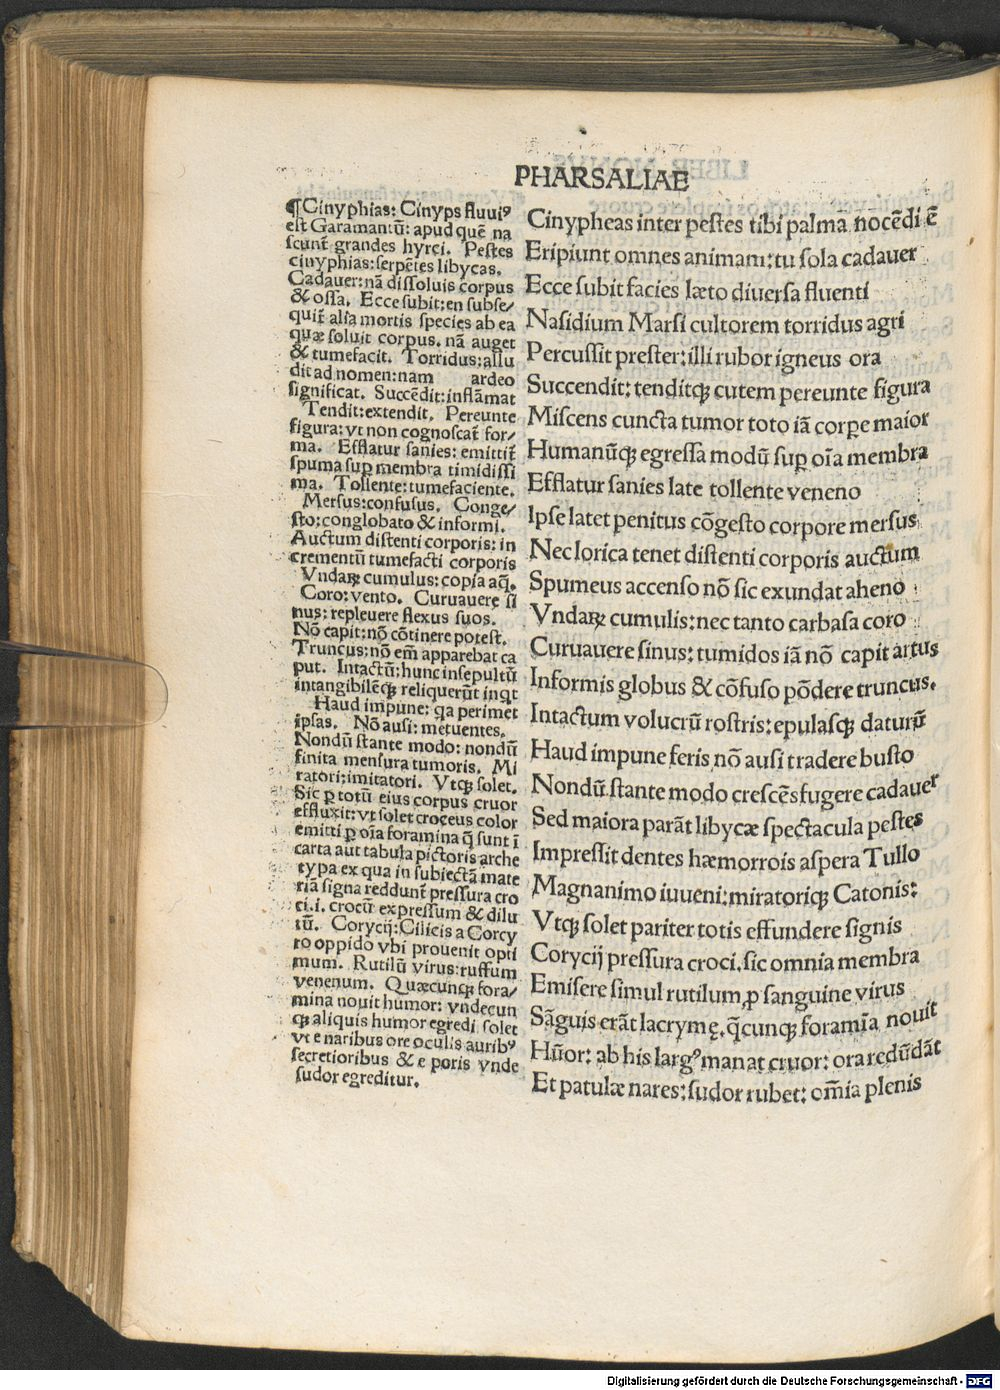 PHARSALIAE
¶Cinyphias: Cinyps fluuiꝰ
est Garamantū: apud quē na
scunt̄ grandes hyrci. Pestes
cinyphias: serpētes libycas.
Cadauer: nā dissoluis corpus
& ossa. Ecce subit: en subse/
quit̄ alia mortis species ab ea
quæ soluit corpus. nā auget
& tumefacit. Torridus: allu
dit ad nomen: nam ardeo
significat. Succēdit: inflāmat
Tendit: extendit. Pereunte
figura: vt non cognoscat̄ for/
ma. Efflatur sanies: emittit̄
spuma suꝑ membra timidissi
ma. Tollente: tumefaciente.
Mersus: confusus. Conge/
sto: conglobato & informi.
Auctum distenti corporis: in
crementū tumefacti corporis
Vndaꝝ cumulus: copia aq̄.
Coro: vento. Curuauere si
nus: repleuere flexus suos.
Nō capit: nō cōtinere potest.
Truncus: nō em̄ apparebat ca
put. Intactū: hunc insepultū
intangibilēqꝫ reliquerūt inqt
Haud impune: qa perimet
ipsas. Nō ausi: metuentes.
Nondū stante modo: nondū
finita mensura tumoris. Mi
ratori: imitatori. Vtqꝫ solet.
Sic ꝑ totū eius corpus cruor
effluxit: vt solet croceus color
emitti ꝑ oīa foramina q̄ sunt ī
carta aut tabula pictoris arche
typa ex qua in subiectā mate
riā signa reddunt̄ pressura cro
ci .i. crocū expressum & dilu
tū. Corycij: Cilicis a Corcy
ro oppido vbi prouenit opti
mum. Rutilū virus: ruffum
venenum. Quæcunqꝫ fora/
mina nouit humor: vndecun
qꝫ aliquis humor egredi solet
vt e naribus ore oculis auribꝰ
secretioribus & e poris vnde
sudor egreditur.
Cinypheas inter pestes tibi palma nocēdi ē
Eripiunt omnes animam: tu sola cadauer
Ecce subit facies læto diuersa fluenti
Nasidium Marsi cultorem torridus agri
Percussit prester: illi rubor igneus ora
Succendit: tenditqꝫ cutem pereunte figura
Miscens cuncta tumor toto iā corꝑe maior
Humanūqꝫ egressa modū suꝑ oīa membra
Efflatur sanies late tollente veneno
Ipse latet penitus cōgesto corpore mersus
Nec lorica tenet distenti corporis auctum
Spumeus accenso nō sic exundat aheno
Vndaꝝ cumulis: nec tanto carbasa coro
Curuauere sinus: tumidos iā nō capit artus
Informis globus & cōfuso pōdere truncus.
Intactum volucrū rostris: epulasqꝫ daturū
Haud impune feris nō ausi tradere busto
Nondū stante modo crescēs fugere cadauer
Sed maiora parāt libycæ spectacula pestes
Impressit dentes hæmorrois aspera Tullo
Magnanimo iuueni: miratoriqꝫ Catonis:
Vtqꝫ solet pariter totis effundere signis
Corycij pressura croci. sic omnia membra
Emisere simul rutilum ꝓ sanguine virus
Sāguis erāt lacrymę. q̄cunqꝫ foramīa nouit
Hūor: ab his largꝰ manat cruor: ora redūdāt
Et patulæ nares: sudor rubet: om̄ia plenis
Digitalisierung gefördert durch die Deutsche Forschungsgemeinschaft - DFG